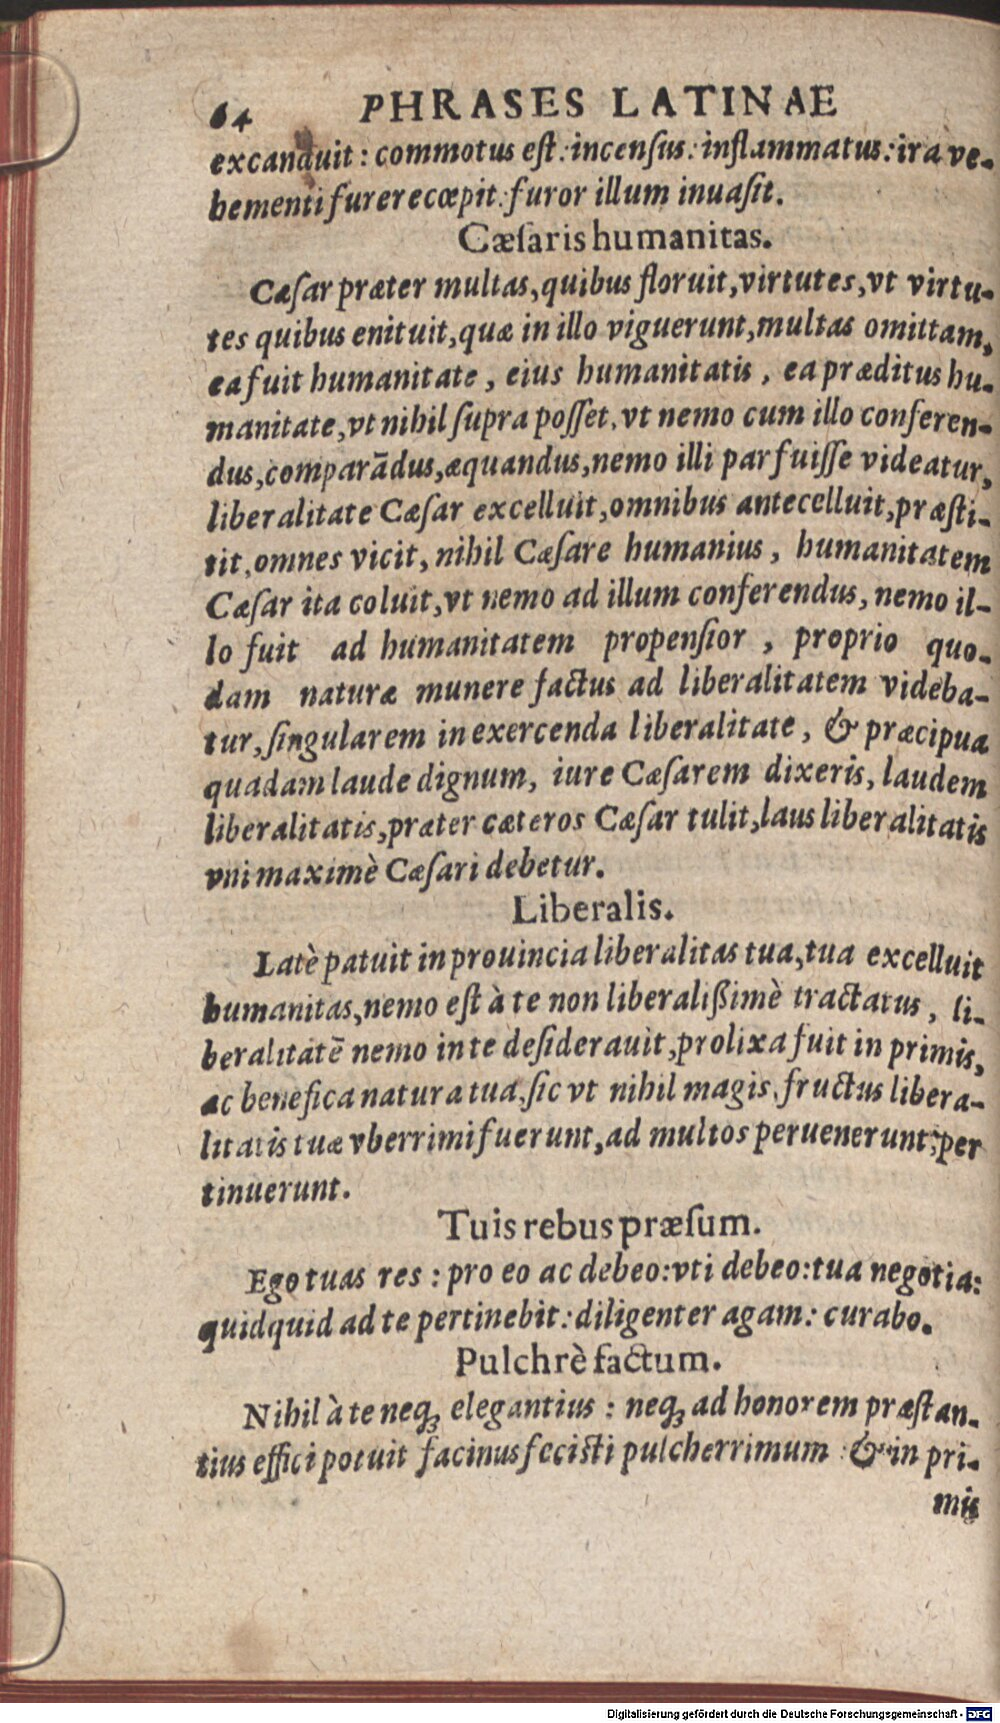 64 PHRASES LATINAE
excanduit : commotus eſt : incenſus : inflammatus : ira ve-
hementi furere cœpit : furor illum inuaſit.
Cæſaris humanitas.
Cæſar præter multas, quibus floruit, virtutes, vt virtu-
tes quibus enituit, quæ in illo viguerunt, multas omittam,
ea fuit humanitate , eius humanitatis , ea præditus hu-
manitate, vt nihil ſupra poſſet, vt nemo cum illo conferen-
dus, comparādus, æquandus, nemo illi par fuiſſe videatur,
liberalitate Cæſar excelluit, omnibus antecelluit, præſti-
tit, omnes vicit, nihil Cæſare humanius , humanitatem
Cæſar ita coluit, vt nemo ad illum conferendus, nemo il-
lo fuit ad humanitatem propenſior , proprio quo-
dam naturæ munere factus ad liberalitatem videba-
tur, ſingularem in exercenda liberalitate , & præcipua
quadam laude dignum, iure Cæſarem dixeris, laudem
liberalitatis, præter cæteros Cæſar tulit, laus liberalitatis
vni maximè Cæſari debetur.
Liberalis.
Latè patuit in prouincia liberalitas tua, tua excelluit
humanitas, nemo eſt à te non liberalißimè tractatus , li-
beralitatē nemo in te deſiderauit, prolixa fuit in primis,
ac benefica natura tua, ſic vt nihil magis, fructus libera-
litatis tuæ vberrimi fuerunt, ad multos peruenerunt, per
tinuerunt.
Tuis rebus præſum.
Ego tuas res : pro eo ac debeo: vti debeo: tua negotia:
quidquid ad te pertinebit : diligenter agam : curabo.
Pulchrè factum.
Nihil à te neqꝫ elegantius : neqꝫ ad honorem præſtan-
tius effici potuit facinus feciſti pulcherrimum : & in pri-
mis
Digitalisierung gefördert durch die Deutsche Forschungsgemeinschaft - DFG